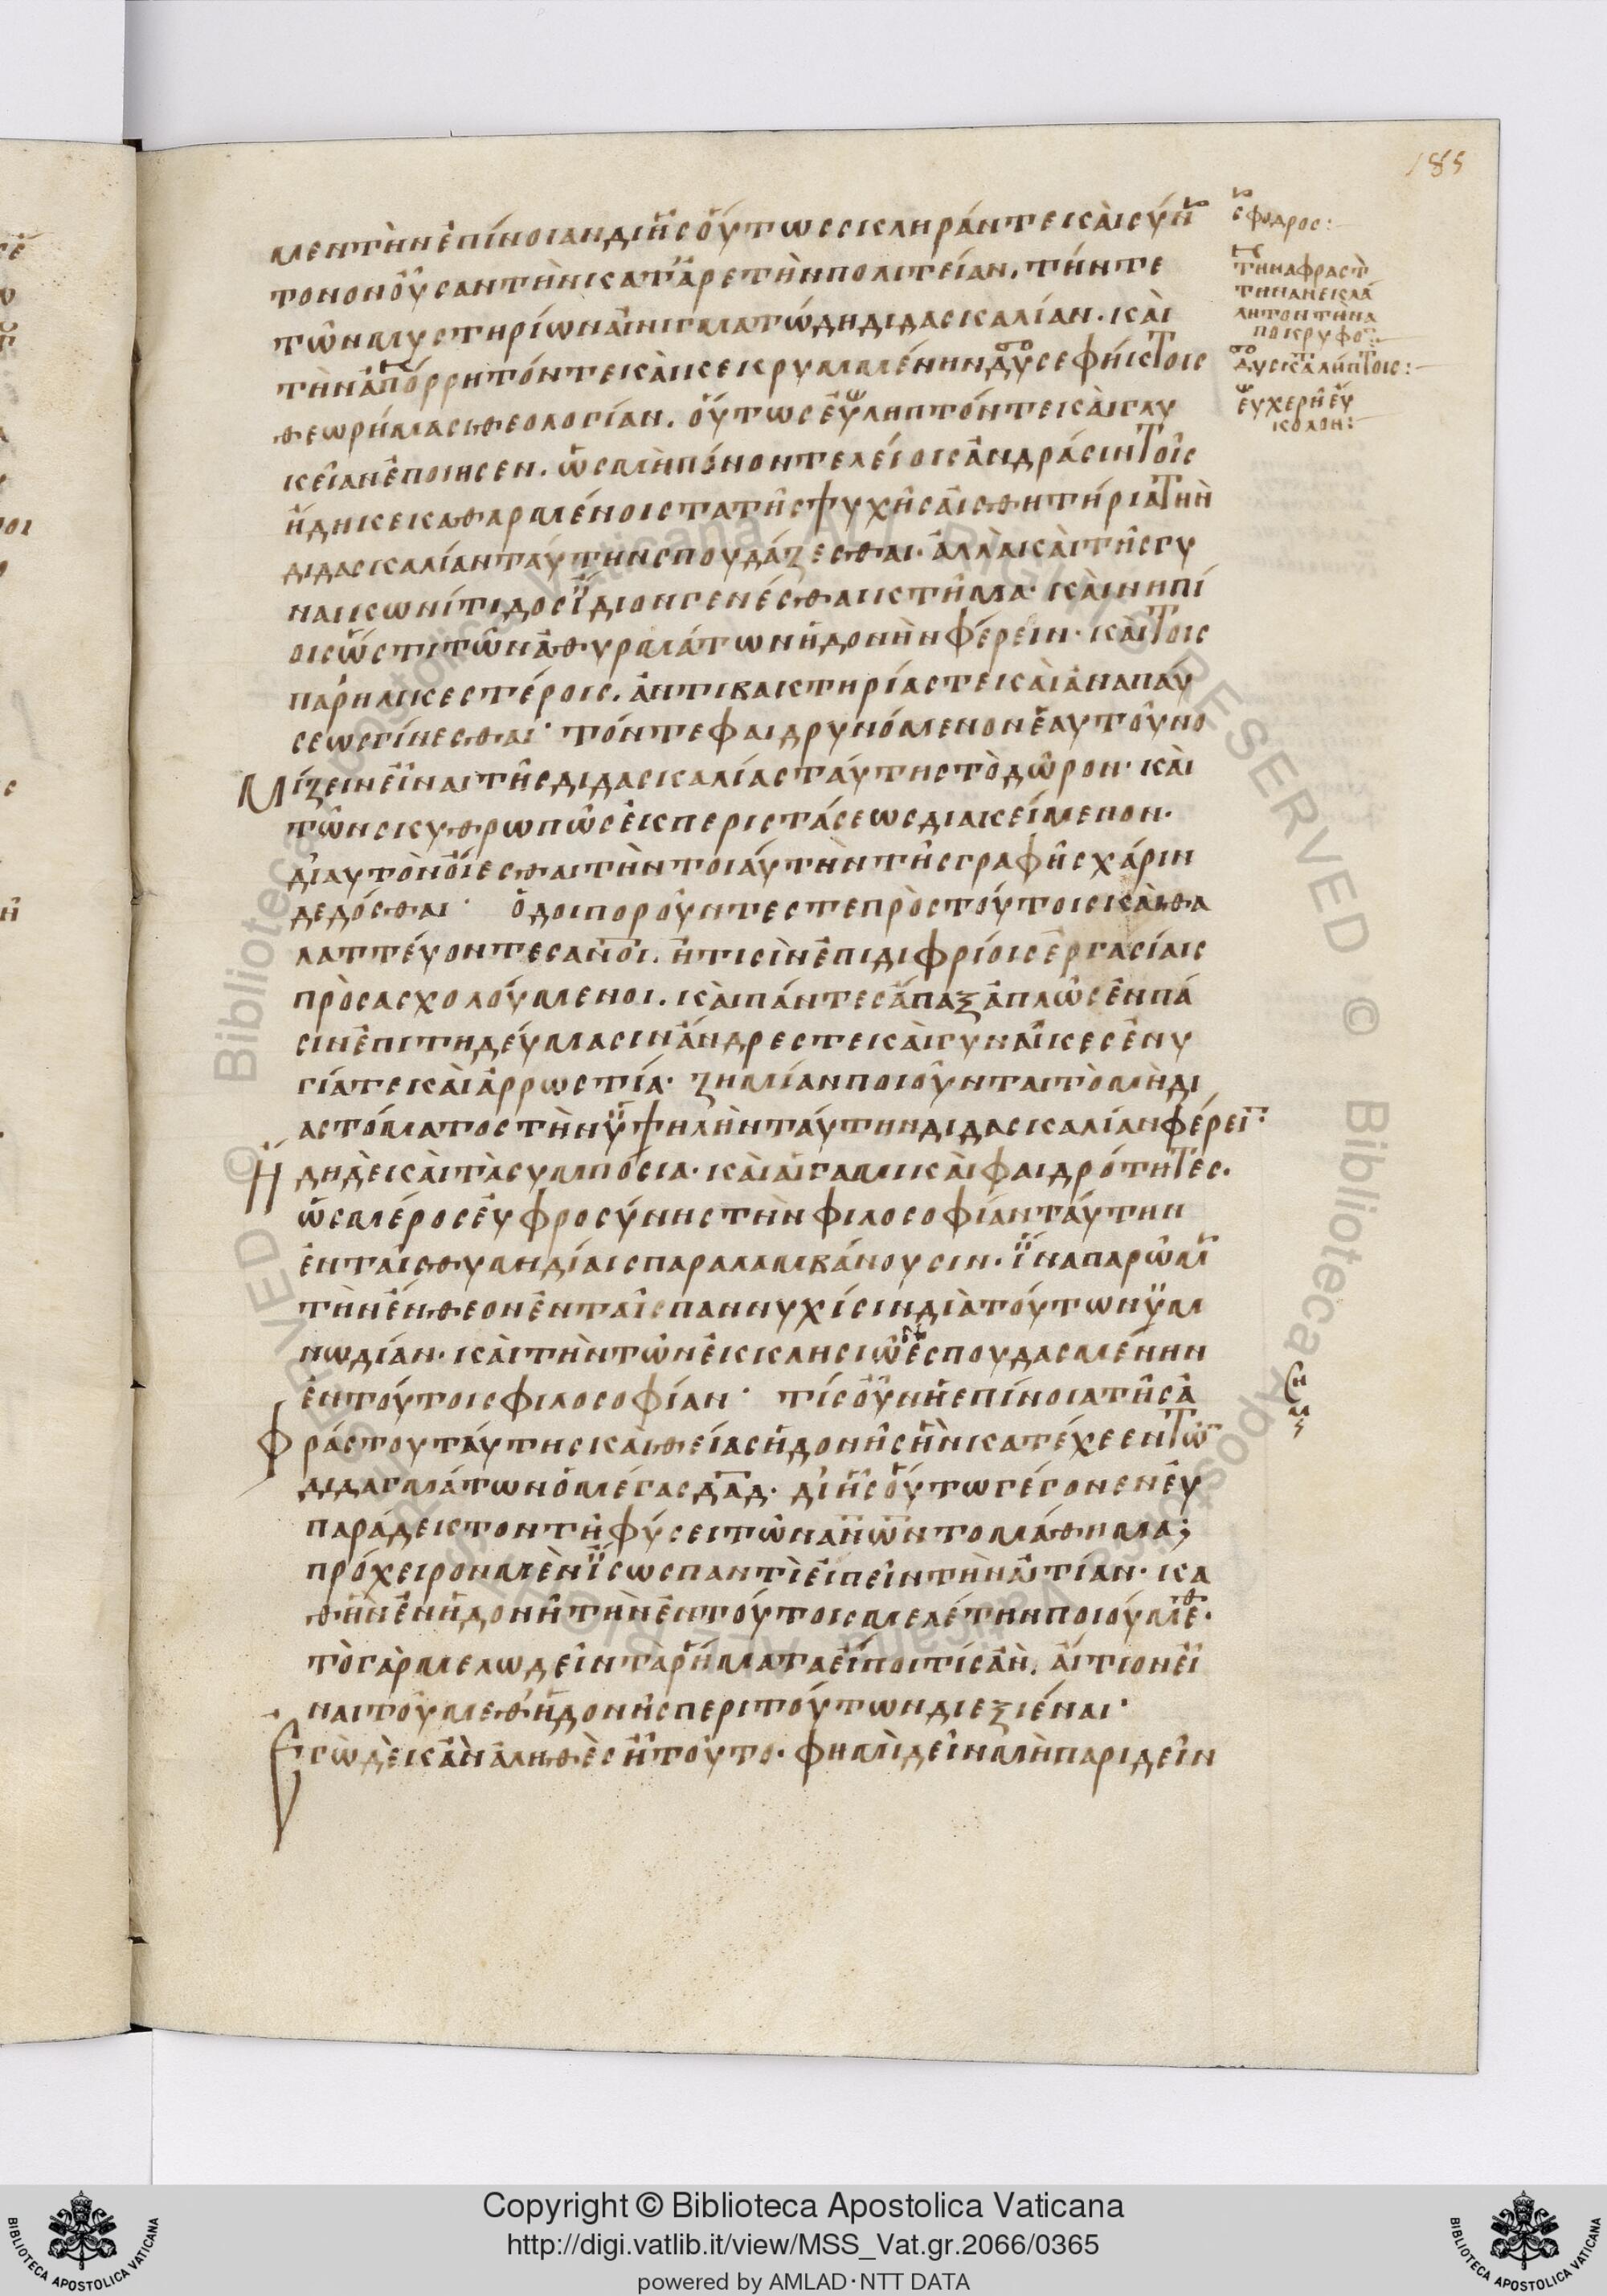 185
μεν τὴν ἐπίνοιαν δι ἧς οὕτω σσκληράν τε καὶ σύν
τονον οὖσαν τὴν κατ' ἀρετὴν πολιτείαν. τήν τε
τῶν μυστηρίων αἰνιγματώδη διδασκαλίαν. καὶ
τὴν ἀπόρρητόν τε καὶ κεκρυμμένην δυσεφήκτοις
θεωρήμασι θεολογίαν. οὕτως εὔληπτόν τε καὶ γλυ
κεῖαν ἐποίησεν. ὡς μὴ μόνον τελείοις ἀνδράσιν τοῖς
ἤδη κεκαθαρμένοις τὰ τῆς ψυχῆς αἰσθητήρια τὴν
διδασκαλίαν ταύτην σπουδάζεσθαι. ἀλλὰ καὶ τῆς γυ
ναικωνίτιδος ἴδιον γενέσθαι κτῆμα. καὶ νηπί
οις ὥς τι τῶν ἀθυρμάτων ἡδονὴν φέρειν. καὶ τοῖς
παρηλικεστέροις. ἀντὶ βακτηρίας τε καὶ ἀναπαύ
σεως γίνεσθαι. τόν τε φαιδρυνόμενον ἑαυτοῦ νο
μίζειν εἶναι τῆς διδασκαλίας ταύτης τὸ δῶρον. καὶ
τῶν σκυθρωπῶς ἐκ περιστάσεως διακείμενον.
δι αυτὸν οἴεσθαι τὴν τοιαύτην τῆς γραφῆς χάριν
δεδόσθαι. ὁδοιποροῦντες τε πρὸς τούτοις καὶ θα
λαττεύοντες ανοι. ἤ τισιν ἐπιδιφρίοις ἐργασίαις
προσασχολούμενοι. καὶ πάντες ἅπαξ ἁπλῶς ἐν πά
σιν ἐπιτηδεύμασιν ἄνδρες τε καὶ γυναῖκες ἐν ὑ
γία τε καὶ ἀρρωστία. ζημίαν ποιοῦνται τὸ μὴ δι
α στόματος τὴν ὑψηλὴν ταύτην διδασκαλίαν φέρει.
ἤδη δὲ καὶ τὰ συμπόσια. καὶ αἱ γαμικαὶ φαιδρότητες.
ὡς μέρος εὐφροσύνης τὴν φιλοσοφίαν ταύτην
ἐν ταῖς θυμηδίαις παραλαμβάνουσιν. ἵνα παρῶμ
τὴν ἔνθεον ἐν ταῖς παννυχίσιν διὰ τούτων ὑμ
νωδίαν. καὶ τὴν τῶν ἐκκλησιῶ ἐσπουδασμένην
ἐν τούτοις φιλοσοφίαν. τίς οὖν ἡ ἐπίνοια τῆς ἀ
φράστου ταύτης καὶ θείας ἡδονῆς ἣν κατέχεεν τῶ
διδαγμάτων ὁ μέγας δαδ. δι ἧς οὕτω γέγονεν εὐ
παράδεκτον τῆ φύσει τῶν ανων τὸ μάθημα;
πρόχειρον μὲν ἴσως παντὶ εἰπεῖν τὴν αἰτίαν. κα
θ ἣν ἐν ἡδονῆ τὴν ἐν τούτοις μελέτην ποιούμεθ.
τὸ γὰρ μελωδεῖν τὰ ῥήματα εἴποι τίς ἂν. αἴτιον εἶ
ναι τοῦ μεθ' ἡδονῆς περὶ τούτων διεξιέναι.
ἐγὼ δὲ κἂν ἀληθὲς ἦ τοῦτο. φημὶ δεῖν μὴ παριδεῖν
σφοδρος:
τὴν αφραστ
την ανεκλά
λητον την α
ποκρυφο
δυσκαλήπτοις:
εὐχερῆ εὔ
κολον:
Copyright © Biblioteca Apostolica Vaticana
http://digi.vatlib.it/view/MSS_Vat.gr.2066/0365
powered by AMLAD·NTT DATA